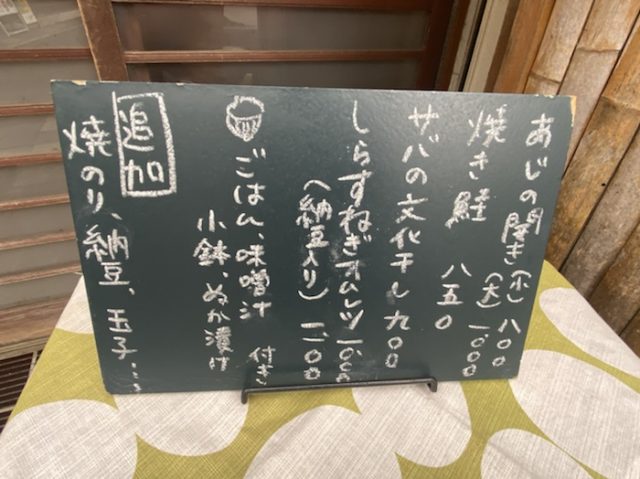 あじの開き(小)八〇〇
(大)一、〇〇〇
焼き鮭 八五〇
サバの文化干し 九〇〇
しらすねぎオムレツ 一、〇〇〇
(納豆入り) 一二〇〇
ごはん、味噌汁
小鉢、ぬか漬け 付き
追加
焼のり、納豆、玉子…